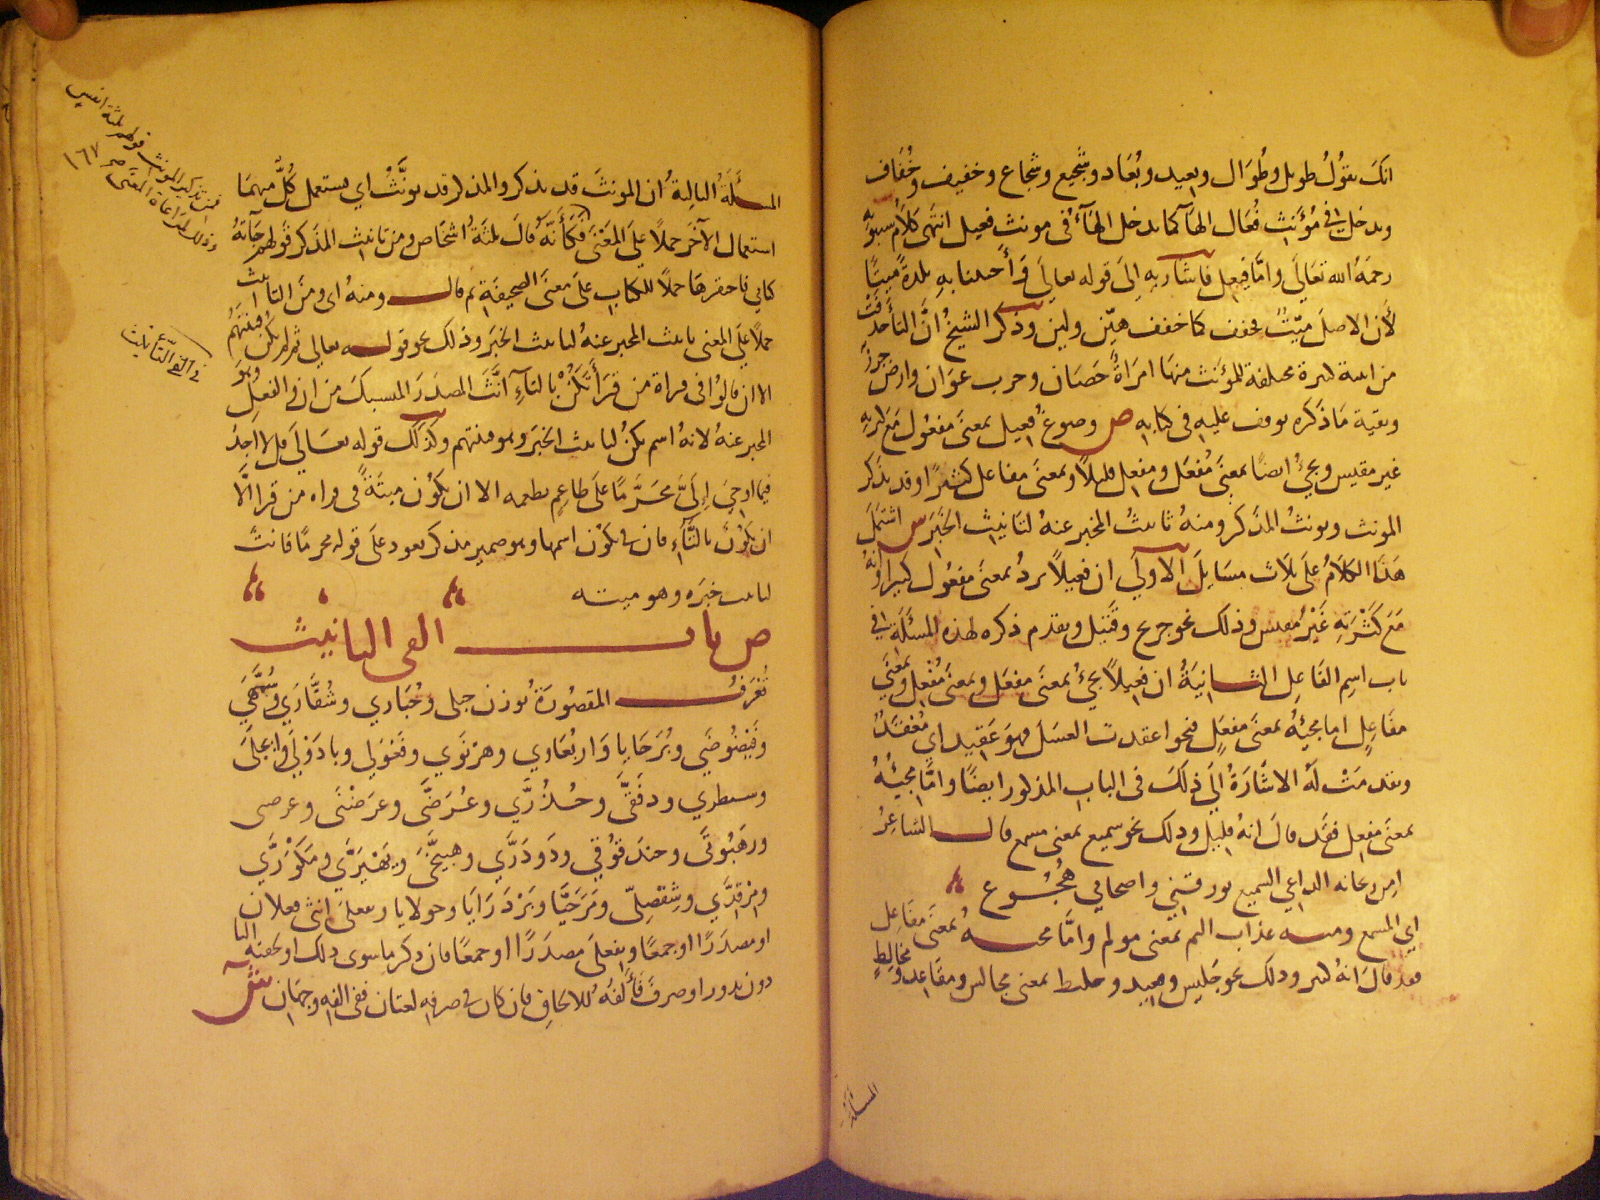 انك تقول طويل وطوال وبعيد وبعاد وشجيع وشجاع وخفيف وخفاف
ويدخل في مؤنث فعال الهاء كما يدخل الهاء في مونث فعيل انتهى كلام سيبويه
رحمه الله تعالى واما فيعل فاشار به الى قوله تعالى وأحيينا به بلدة ميتا
لأن الاصل ميت مخفف كما خفف هين ولين وذكر الشيخ ان التا حذفت
من امثلة كثيرة مختلفة للمؤنث منها امراة حصان وحرب عوان وارض جرز
وبقية ما ذكره يوقف عليه في كتابه ص وصوغ فعيل بمعنى مفعول مع كثرته
غير مقيس ويجئ ايضا بمعنى مفعل ومفعل قليلا وبمعنى مفاعل كثيرا وقد يذكر
المونث ويونث المذكر ومنه تانيث المخبر عنه لتانيث الخبر س اشتمل
هذا الكلام على ثلاث مسايل الاولى ان فعيلا يرد بمعنى مفعول كثيرا وانه
مع كثرته غير مقيس وذلك نحو جريح وقتيل وتقدم ذكره لهذه المسئلة في
باب اسم الفاعل الثانية ان فعيلا يجئ بمعنى مفعل وبمعنى مفعل وبمعنى
مفاعل اما مجيئه بمعنى مفعل فنحو اعقدت العسل فهو عقيد اي معقد
وتقدمت له الاشارة الى ذلك في الباب المذكور ايضا واما مجيئه
بمعنى مفعل فقد قال انه قليل وذلك نحو سميع بمعنى مسمع قال الشاعر
امن ريحانه الداعي السميع يورقني واصحابي هجوع
اي المسمع ومنه عذاب اليم بمعنى مولم واما مجيئه بمعنى مفاعل
فقد قال انه كثير وذلك نحو جليس وقعيد وخليط بمعنى مجالس ومقاعد ومخالط
المسئلة
المسألة الثالثة ان المونث قد يذكر والمذكر قد يونث اي يستعمل كل منهما
استعمال الآخر حملا على المعنى فكأنه قال ثلثة اشخاص ومن تانيث المذكر قولهم جآته
كتابي فاحتقرها حملا للكتاب على معنى الصحيفة ثم قال ومنه اي ومن التانيث
حملا على المعنى تانيث المخبر عنه لتانيث الخبر وذلك نحو قوله تعالى ثم لم تكن فتنتهم
الا ان قالوا في قراة من قرأ تكن بالتاء انث المصدر المنسبك من ان والفعل وهو
المخبر عنه لانه اسم تكن لتانيث الخبر وهو فتنتهم وكذلك قوله تعالى قل لا اجد
فيما اوحي إلي محرما على طاعم يطعمه الا ان تكون ميتة في قراه من قرا الا
ان تكون بالتاء فان في تكون اسمها وهو ضمير مذكر يعود على قوله محرما فانث
لتانيث خبره وهو ميته
ص باب الفي التانيث
تعرف المقصورة بوزن حبلى وحبارى وشقارى وسمهى
وفيضوضى وبرحايا واربعاوى وهرنوى وقعولى وبادولى وايجلى
وسبطرى ودفقى وحذرى وعرضى وعرضنى وعرضى
ورهبوتى وحندقوقى ودودرى وهبيخى ويهيرى ومكورى
ومرقدى وشفصلى ومرحيا وبردرايا وحولايا وبفعلى انثى فعلان
او مصدرا او جمعا وبفعلى مصدرا او جمعا فان ذكر ما سوى ذلك او لحقته التا
دون ندور او صرف فألفه للالحاق فان كان في صرفه لغتان ففي الفه وجهان ش
في الفي التانيث